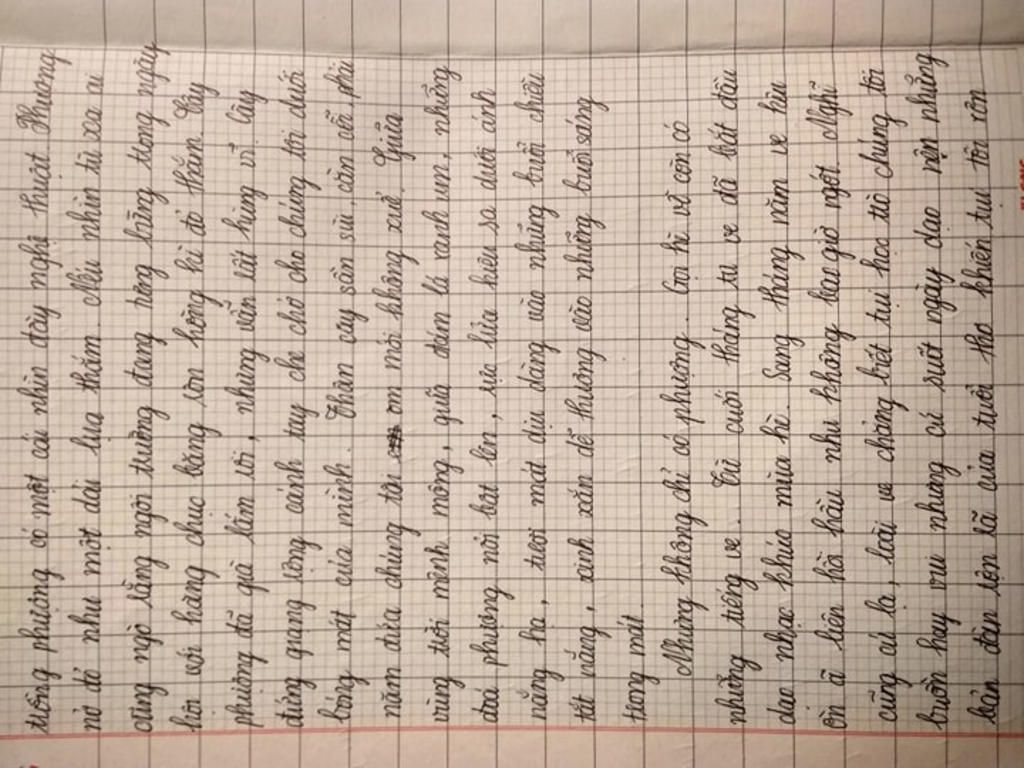 trông phượng có một cái nhìn đầy nghệ thuật. Phượng
nở đỏ như một dải lụa thắm. Nếu nhìn từ xa ai
cũng ngỡ rằng ngôi trường đang hồng hồng trong ngày
hội với hàng chục băng sơn hồng kì đỏ thắm. Cây
phượng đã già lắm rồi, nhưng vẫn rất hùng vĩ. Cây
đứng giang rộng cánh tay che chở cho chúng tôi dưới
bóng mát của mình. Thân cây sần sùi, cằn cỗi, phải
năm đứa chúng tôi ôm mới không xuể. Giữa
vùng trời mênh mông, giữa đám lá xanh um, những
đoá phượng nổi bật lên, rực lửa kiêu sa dưới ánh
nắng hạ, tươi mát dịu dàng vào những buổi chiều
tắt nắng, xinh xắn dễ thương vào những buổi sáng
trong mát.
Nhưng không chỉ có phượng. Gọi hè về còn có
những tiếng ve. Từ cuối tháng tư ve đã bắt đầu
dạo nhạc khúc mùa hè. Sang tháng năm ve kêu
ồn ã liên hồ hầu như không bao giờ ngớt. Nghĩ
cũng cứ lạ, loài ve chẳng biết tụi học trò chúng tôi
buồn hay vui nhưng cứ suốt ngày dạo rộn những
bản đàn rộn rã của tuổi thơ khiến tụi tôi rộn